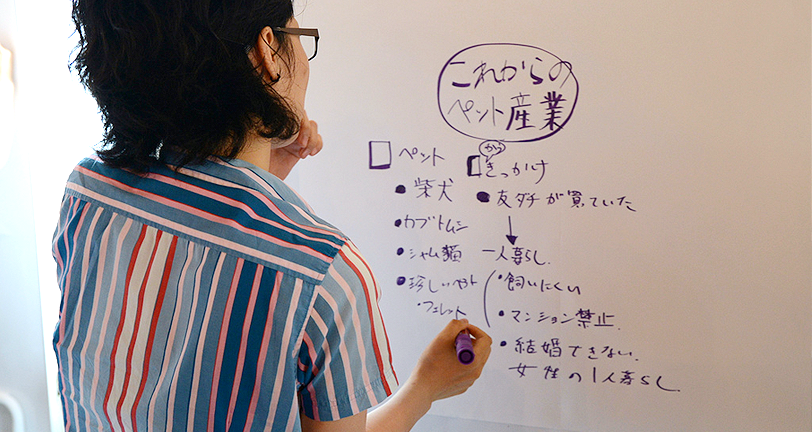 これからの
ペット産業
ペット
・柴犬
・カブトムシ
・シャム猫
・珍しいやつ
・フェレット
かう
きっかけ
・友ダチが買っていた
↓
一人暮らし
・飼いにくい
・マンション禁止
・結婚できない.
女性の1人暮らし.